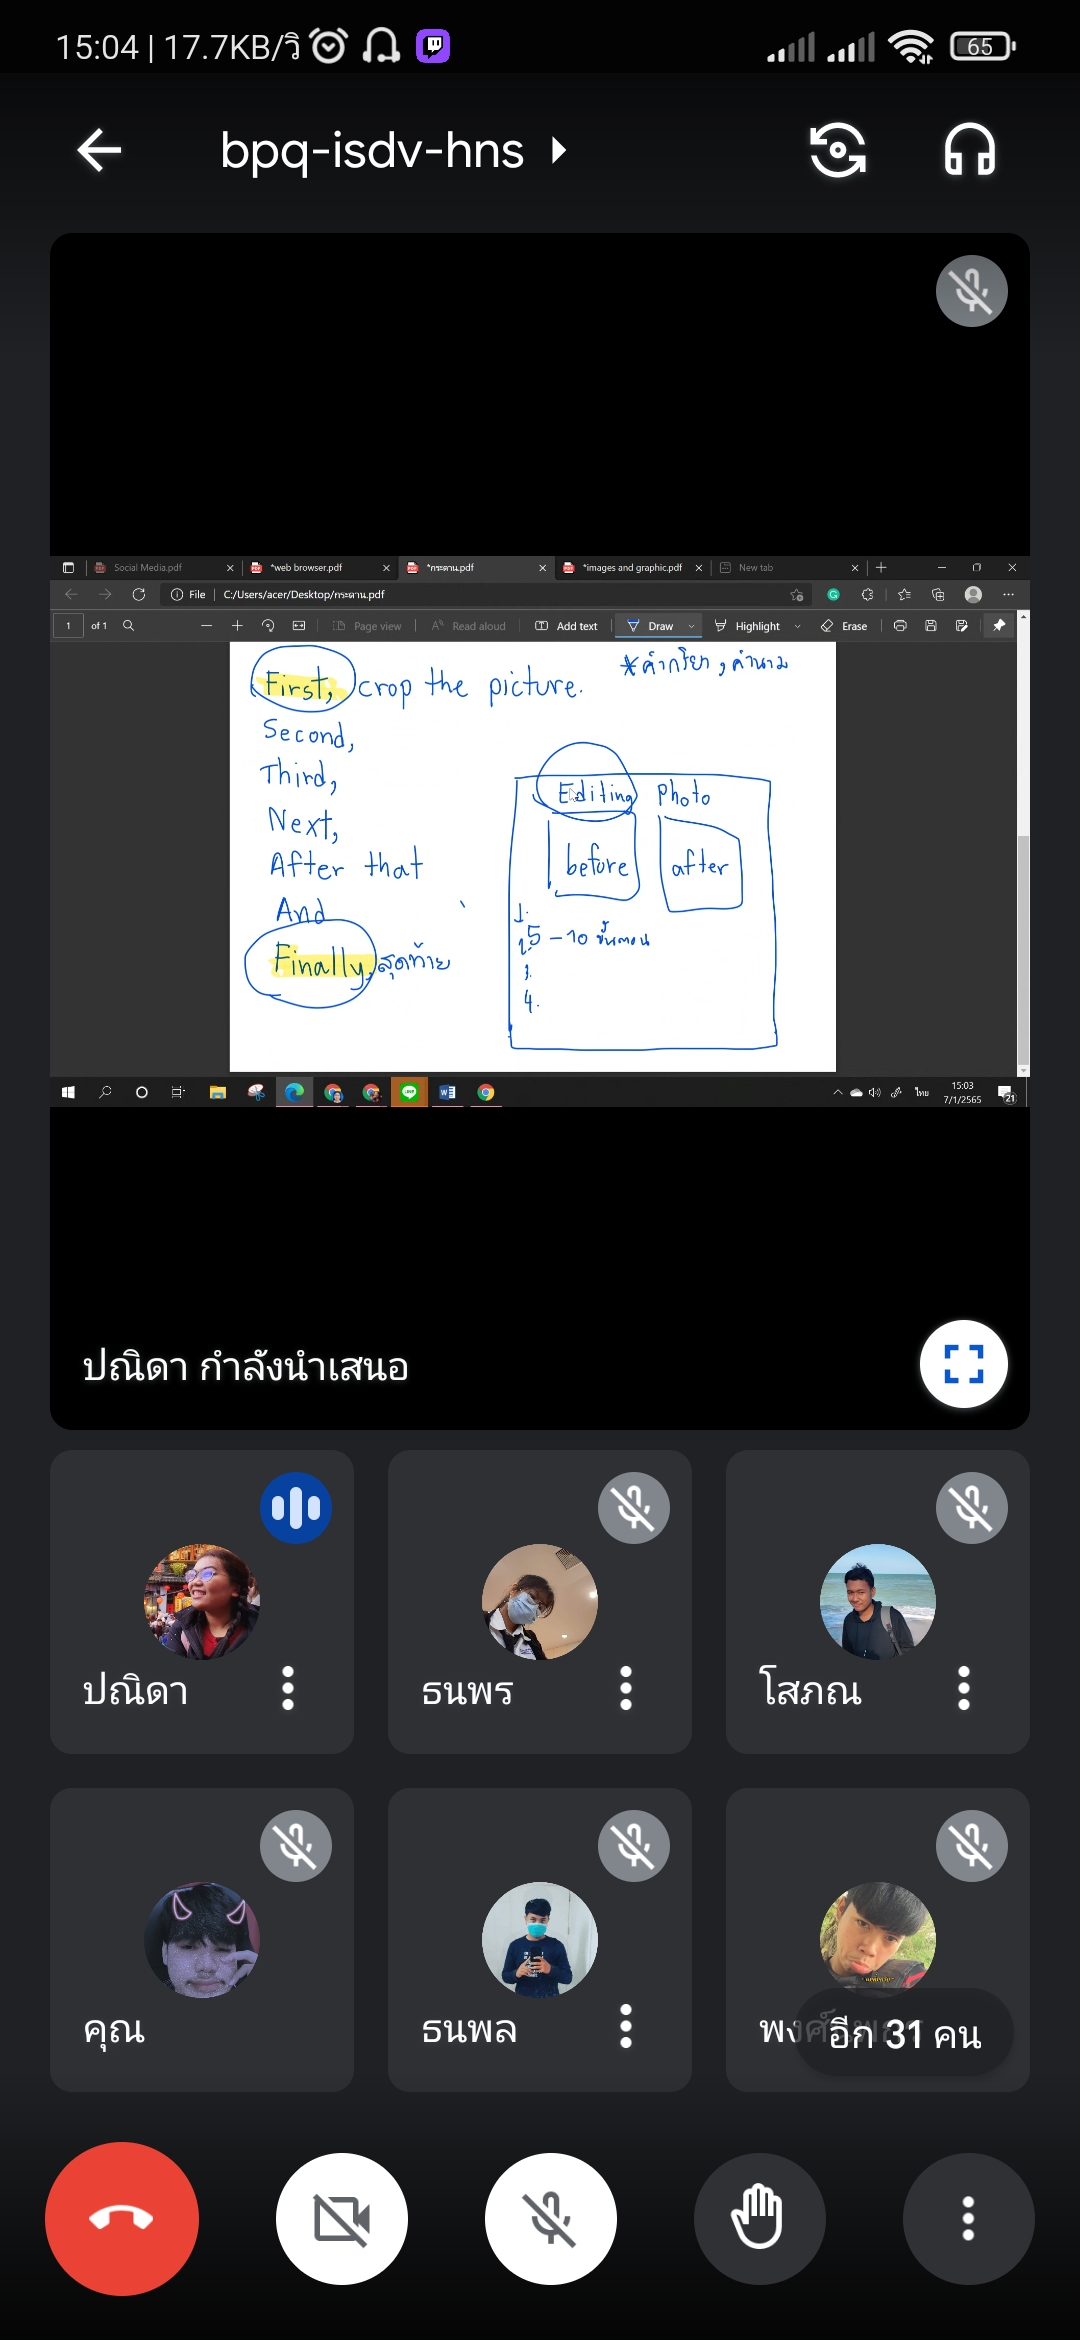 15:04 | 17.7KB/วิ
65
bpq-isdv-hns
Social Media.pdf
*web browser.pdf
*กระดาน.pdf
*images and graphic.pdf
New tab
File
C:/Users/acer/Desktop/กระดาน.pdf
1 of 1
Page view
Read aloud
Add text
Draw
Highlight
Erase
First, crop the picture.
*คำกริยา, คำนาม
Second,
Third,
Next,
After that
And
Finally, สุดท้าย
Editing Photo
before
after
1.
2.
5 - 10 ขั้นตอน
3.
4.
ไทย
15:03
7/1/2565
21
ปณิดา กำลังนำเสนอ
ปณิดา
ธนพร
โสภณ
คุณ
ธนพล
อีก 31 คน